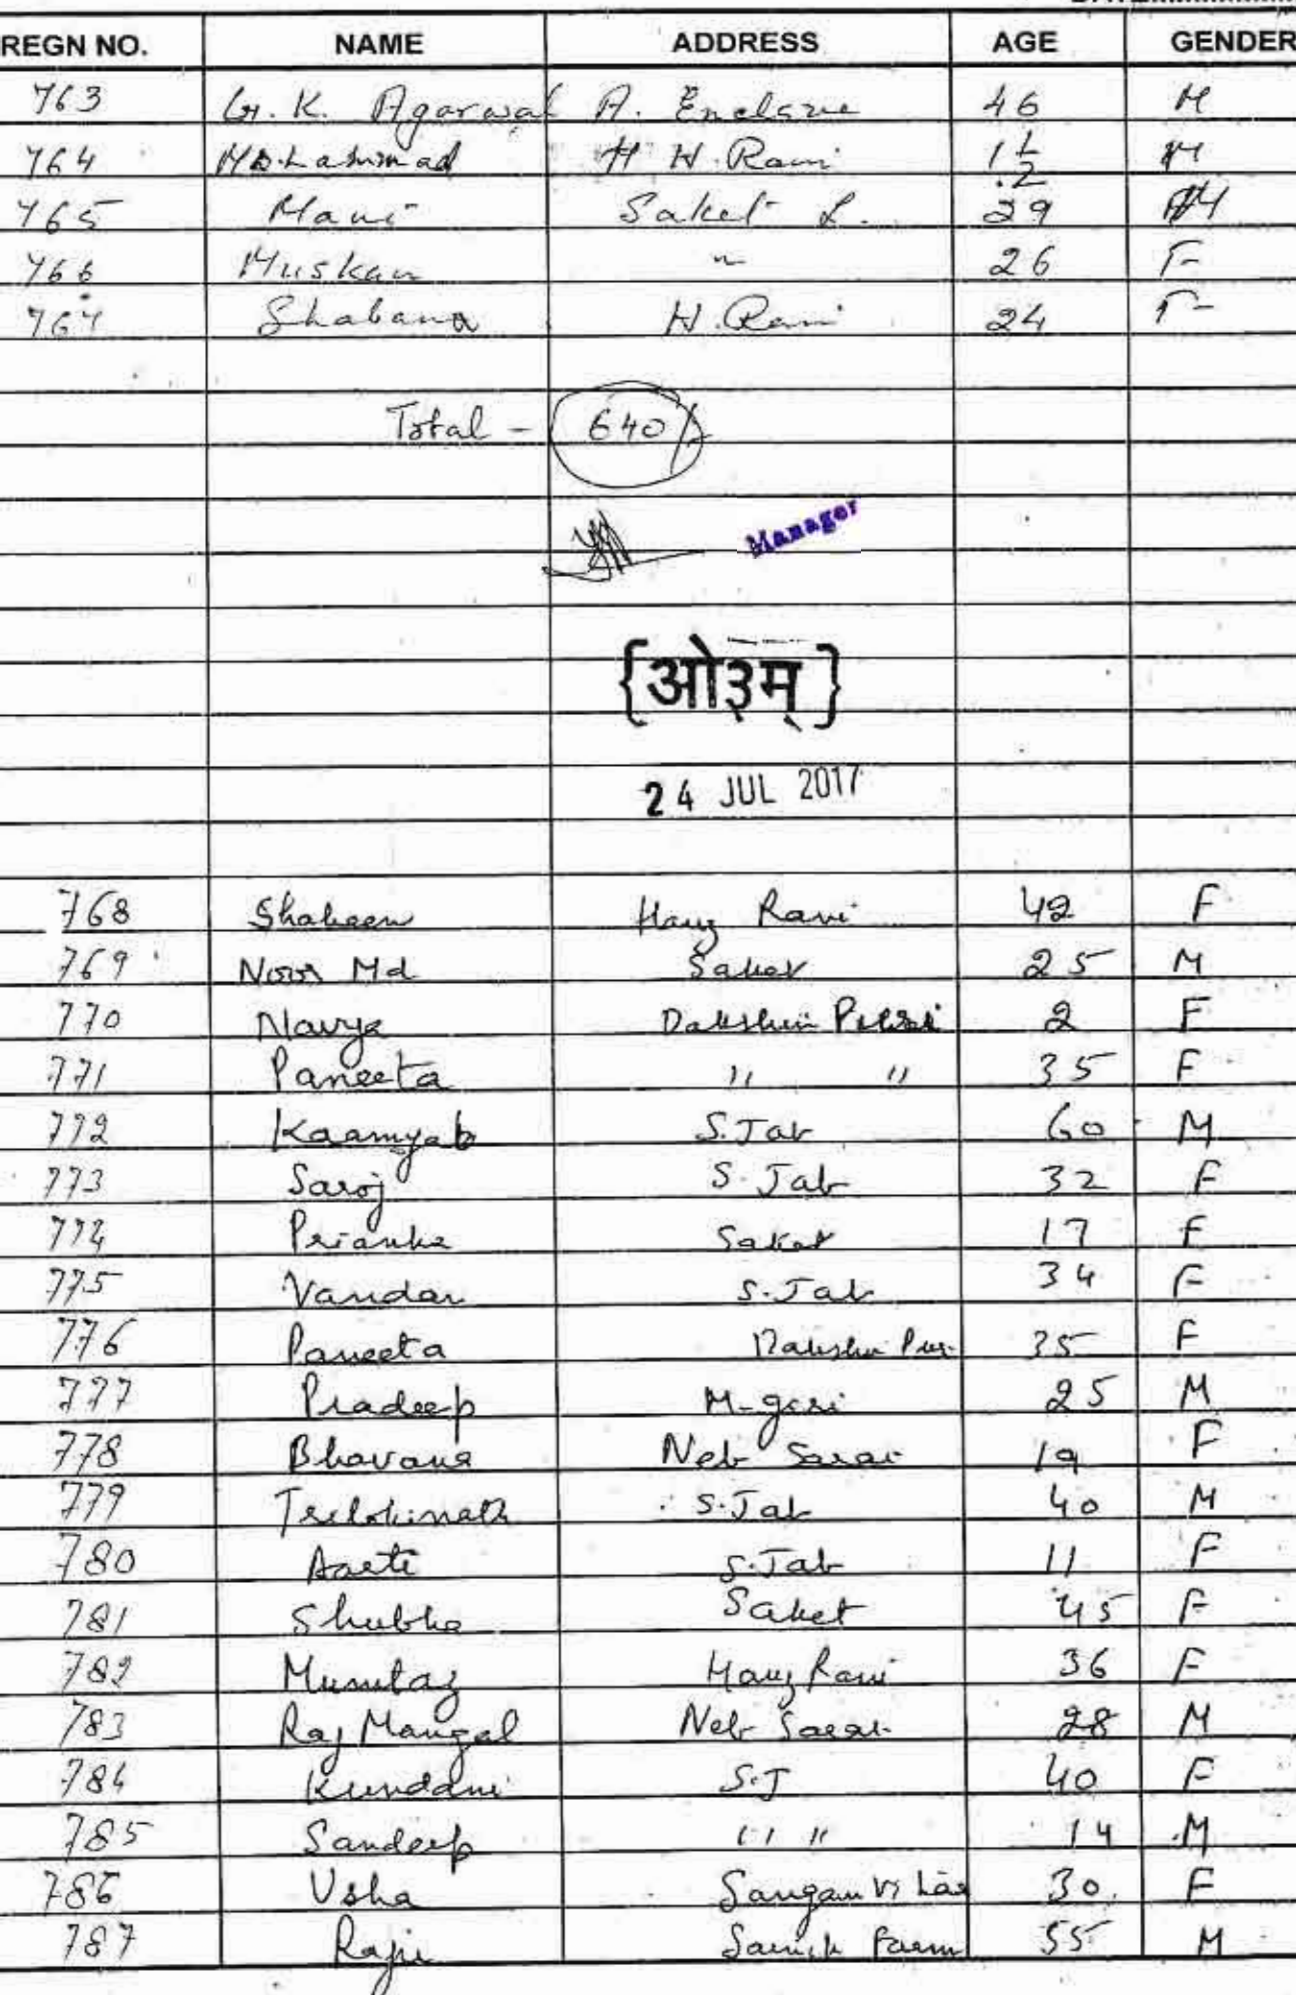 REGN NO. NAME ADDRESS AGE GENDER
763 G. K. Agarwal A. Enclave 46 M
764 H. Rani 1 1/2 M
765 Mani Saket 29 M
766 Muskan " 26 F
767 Shabana H. Rani 24 F
Total - 640/-
Manager
{ओ३म्}
24 JUL 2017
768 Shaheen Hauz Rani 42 F
769 Noor Md Saket 25 M
770 Navya Dakshin Puri 2 F
771 Paneeta " " 35 F
772 Kaamyab S. Jab 60 M
773 Saroj S. Jab 32 F
774 Prianka Saket 17 F
775 Vandan S. Jab 34 F
776 Paneeta Dakshin Puri 35 F
777 Pradeep M-gari 25 M
778 Bhavana Neb Sarai 19 F
779 Trilokinath S. Jab 40 M
780 Aarti S. Jab 11 F
781 Shubha Saket 45 F
782 Mumtaz Hauz Rani 36 F
783 Raj Mangal Neb Sarai 28 M
784 Kundani S.J 40 F
785 Sandeep " " 14 M
786 Usha Sangam Vihar 30 F
787 Raju Sainik Farm 55 M